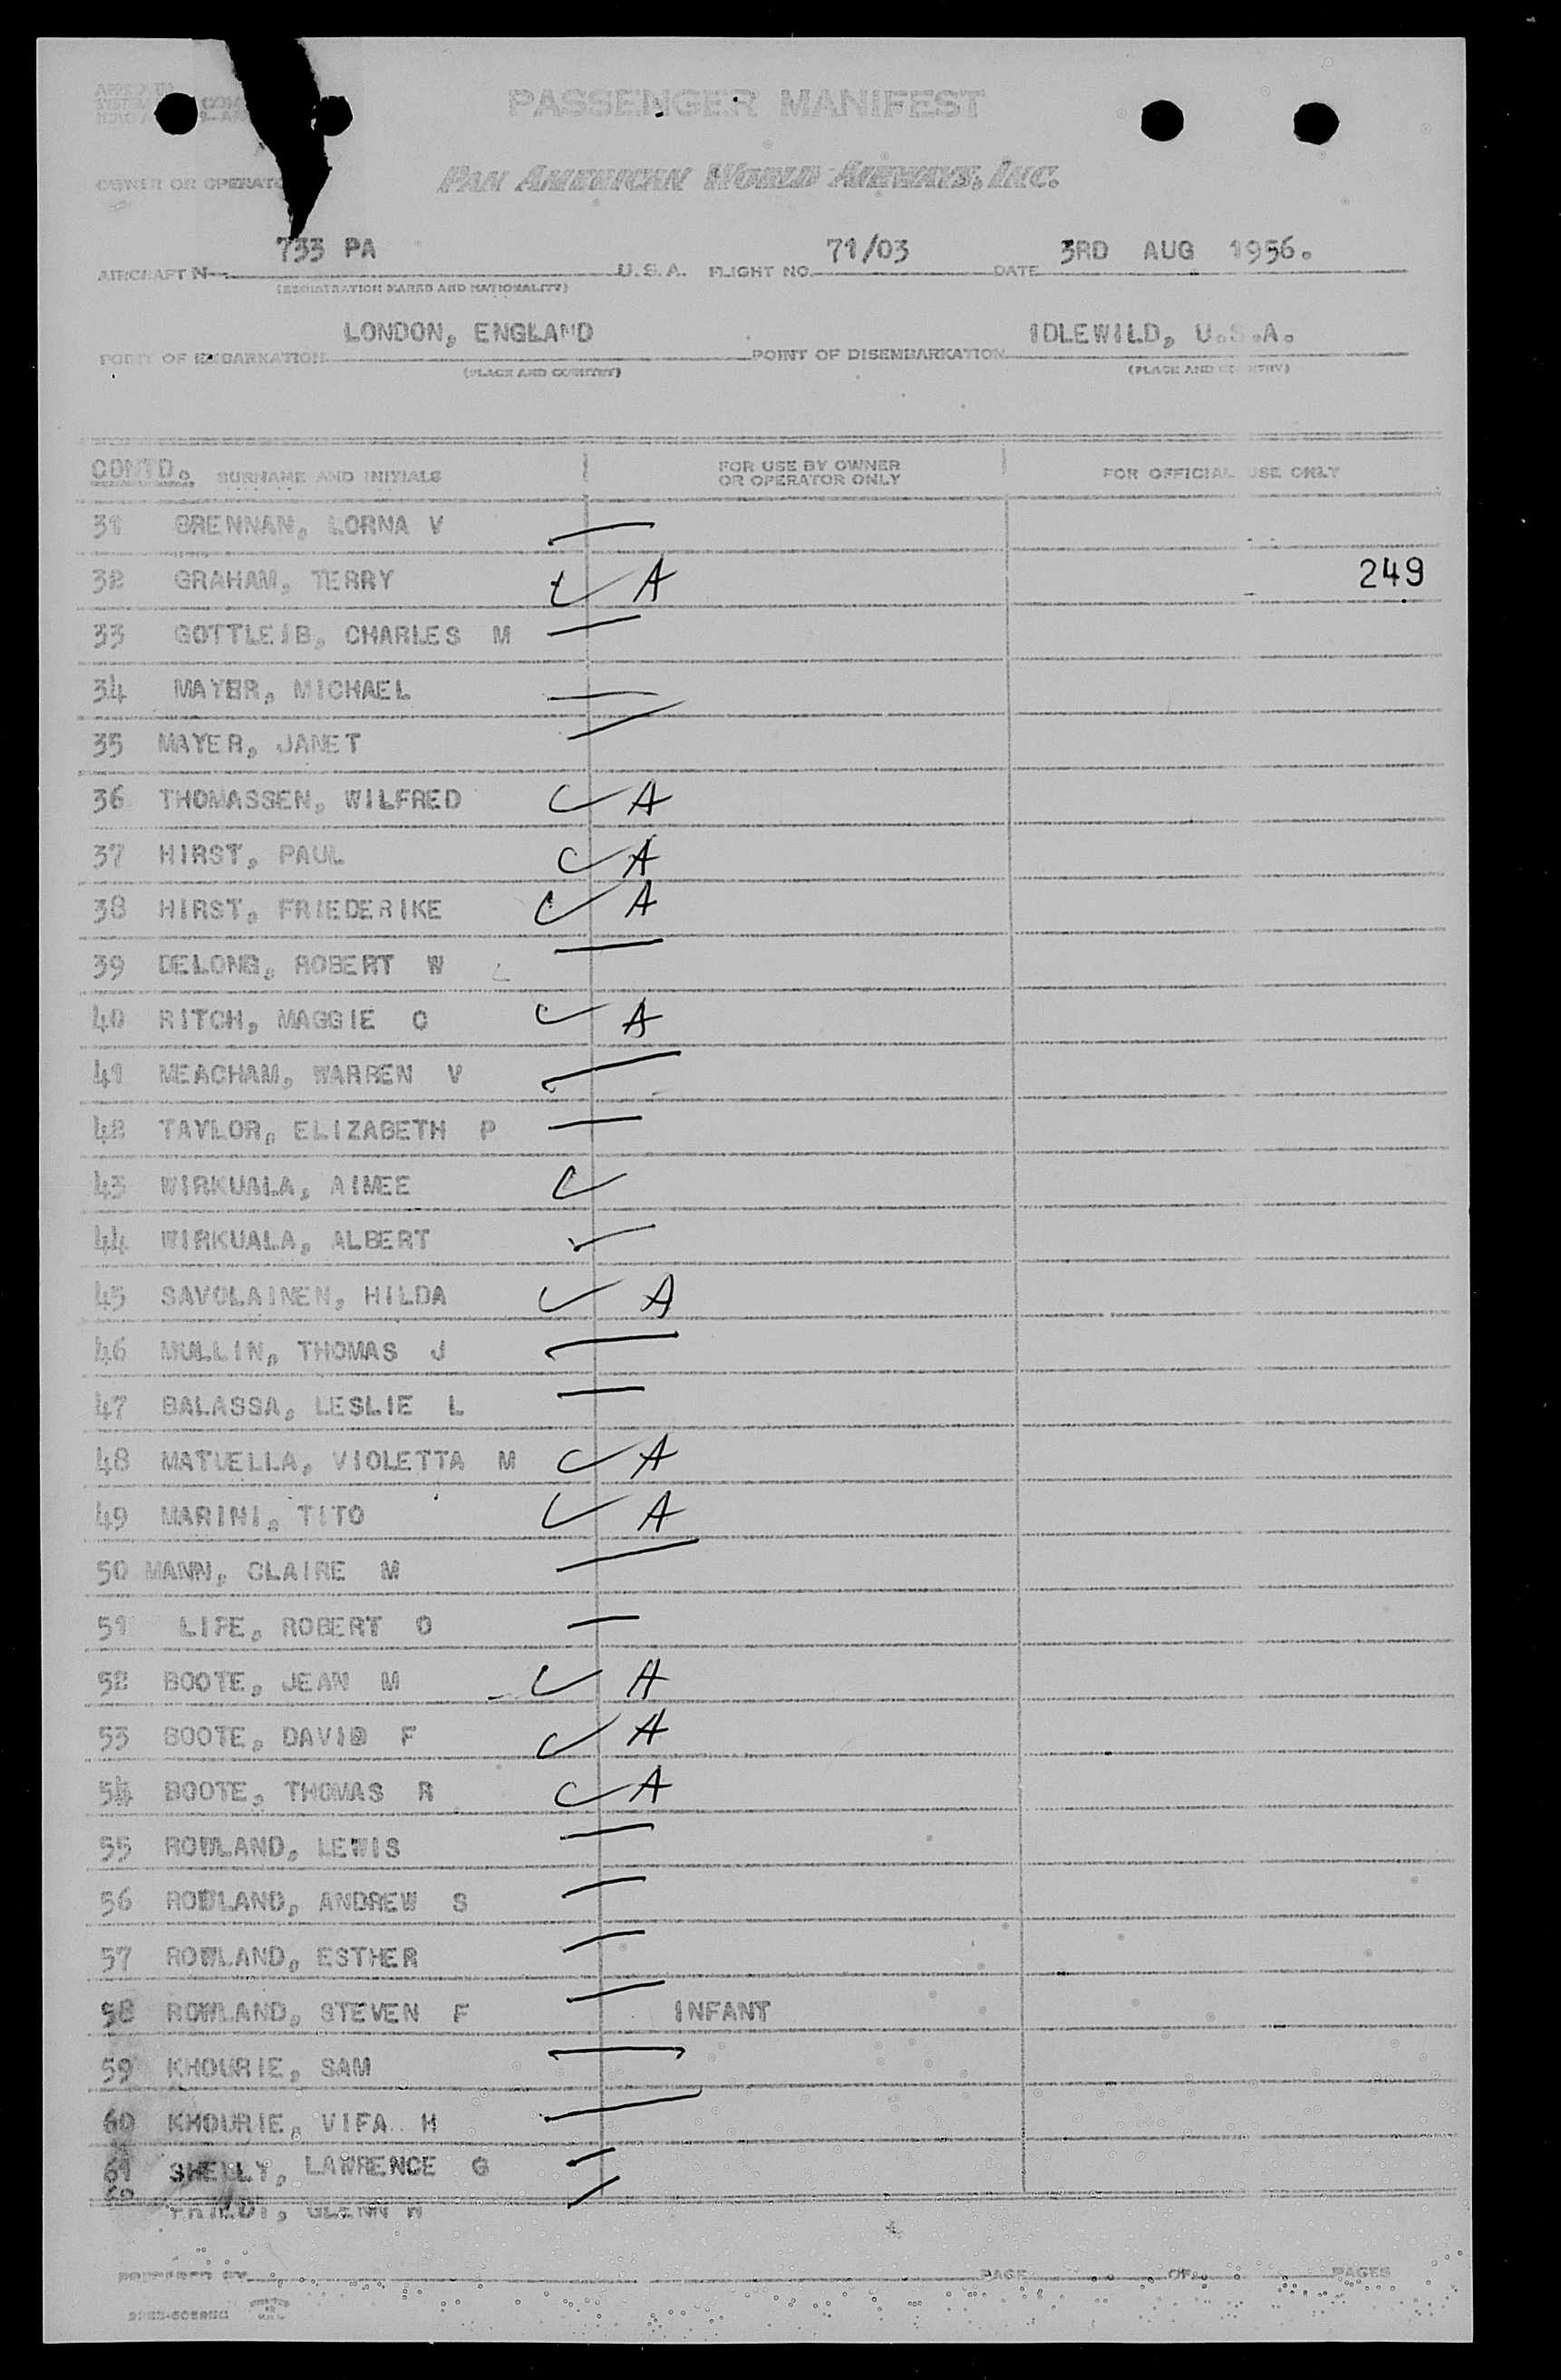 PASSENGER MANIFEST
OWNER OR OPERATOR PAN AMERICAN WORLD AIRWAYS, INC.
AIRCRAFT N 733 PA U.S.A. FLIGHT NO. 71/03 DATE 3RD AUG 1956.
(REGISTRATION MARKS AND NATIONALITY)
POINT OF EMBARKATION LONDON, ENGLAND POINT OF DISEMBARKATION IDLEWILD, U.S.A.
(PLACE AND COUNTRY) (PLACE AND COUNTRY)
CONTD. SURNAME AND INITIALS FOR USE BY OWNER OR OPERATOR ONLY FOR OFFICIAL USE ONLY
31 BRENNAN, LORNA V
32 GRAHAM, TERRY A 249
33 GOTTLEIB, CHARLES M
34 MAYER, MICHAEL
35 MAYER, JANET
36 THOMASSEN, WILFRED A
37 HIRST, PAUL A
38 HIRST, FRIEDERIKE A
39 DELONG, ROBERT W
40 RITCH, MAGGIE C A
41 MEACHAM, WARREN V
42 TAYLOR, ELIZABETH P
43 WIRKUALA, AIMEE
44 WIRKUALA, ALBERT
45 SAVOLAINEN, HILDA A
46 MULLIN, THOMAS J
47 BALASSA, LESLIE L
48 MATUELLA, VIOLETTA M A
49 MARINI, TITO A
50 MANN, CLAIRE M
51 LIPE, ROBERT O
52 BOOTE, JEAN M A
53 BOOTE, DAVID F A
54 BOOTE, THOMAS R A
55 ROWLAND, LEWIS
56 ROWLAND, ANDREW S
57 ROWLAND, ESTHER
58 ROWLAND, STEVEN F INFANT
59 KHOURIE, SAM
60 KHOURIE, VIFA H
61 SHELLY, LAWRENCE G
62 GLENN
PREPARED BY PAGE OF PAGES